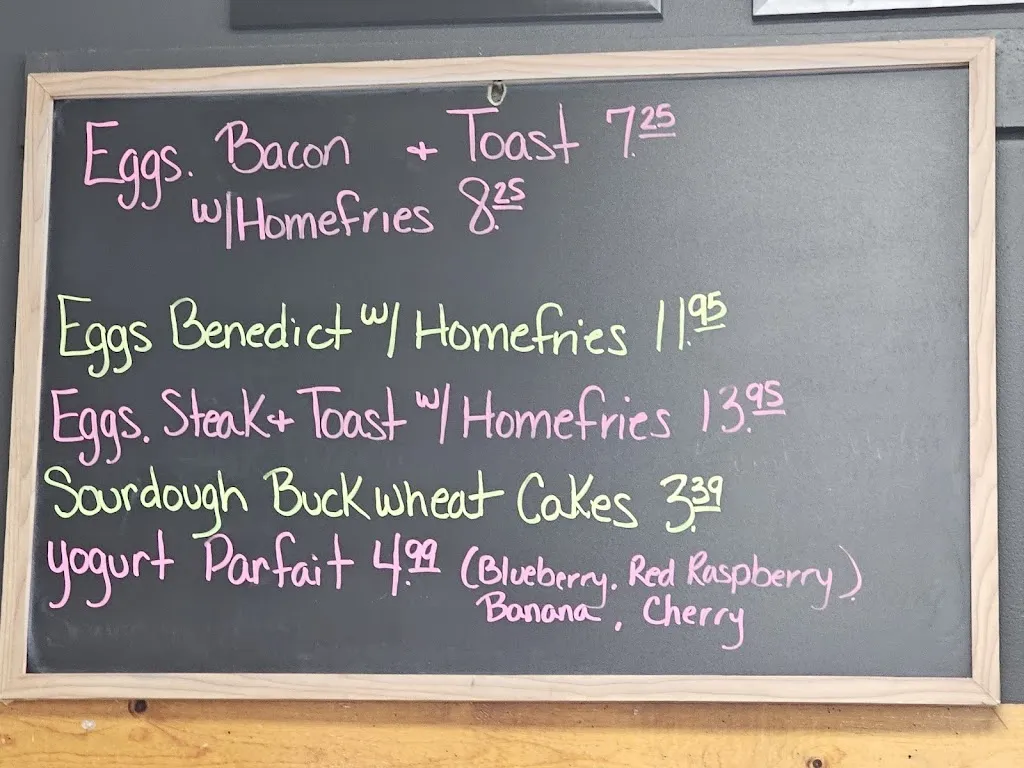 Eggs. Bacon + Toast 7.25
w/Homefries 8.25
Eggs Benedict w/ Homefries 11.95
Eggs. Steak + Toast w/ Homefries 13.95
Sourdough Buckwheat Cakes 3.39
yogurt Parfait 4.99 (Blueberry, Red Raspberry)
Banana, Cherry